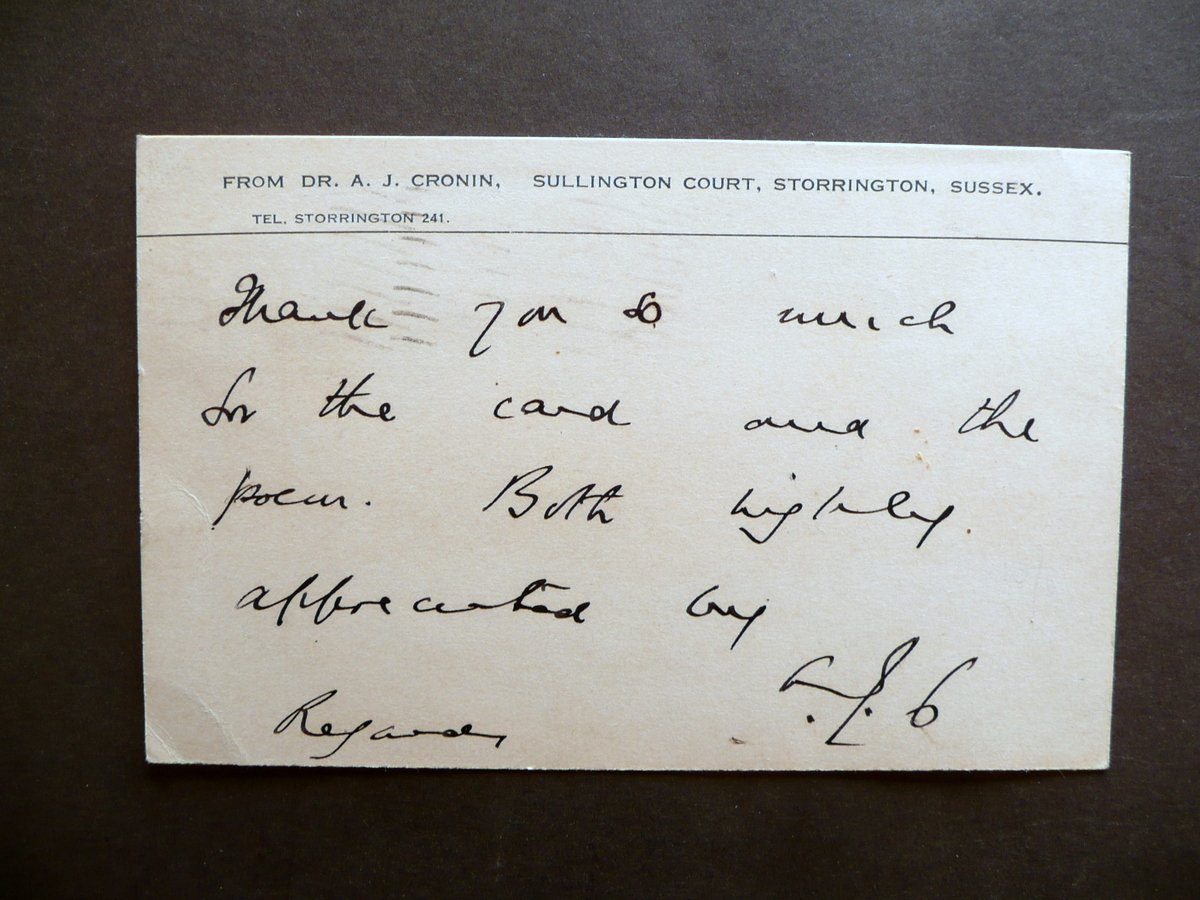 FROM DR. A. J. CRONIN, SULLINGTON COURT, STORRINGTON, SUSSEX.
TEL. STORRINGTON 241.
Thank you so much
for the card and the
poem. Both highly
appreciated by
A. J. C
Regards